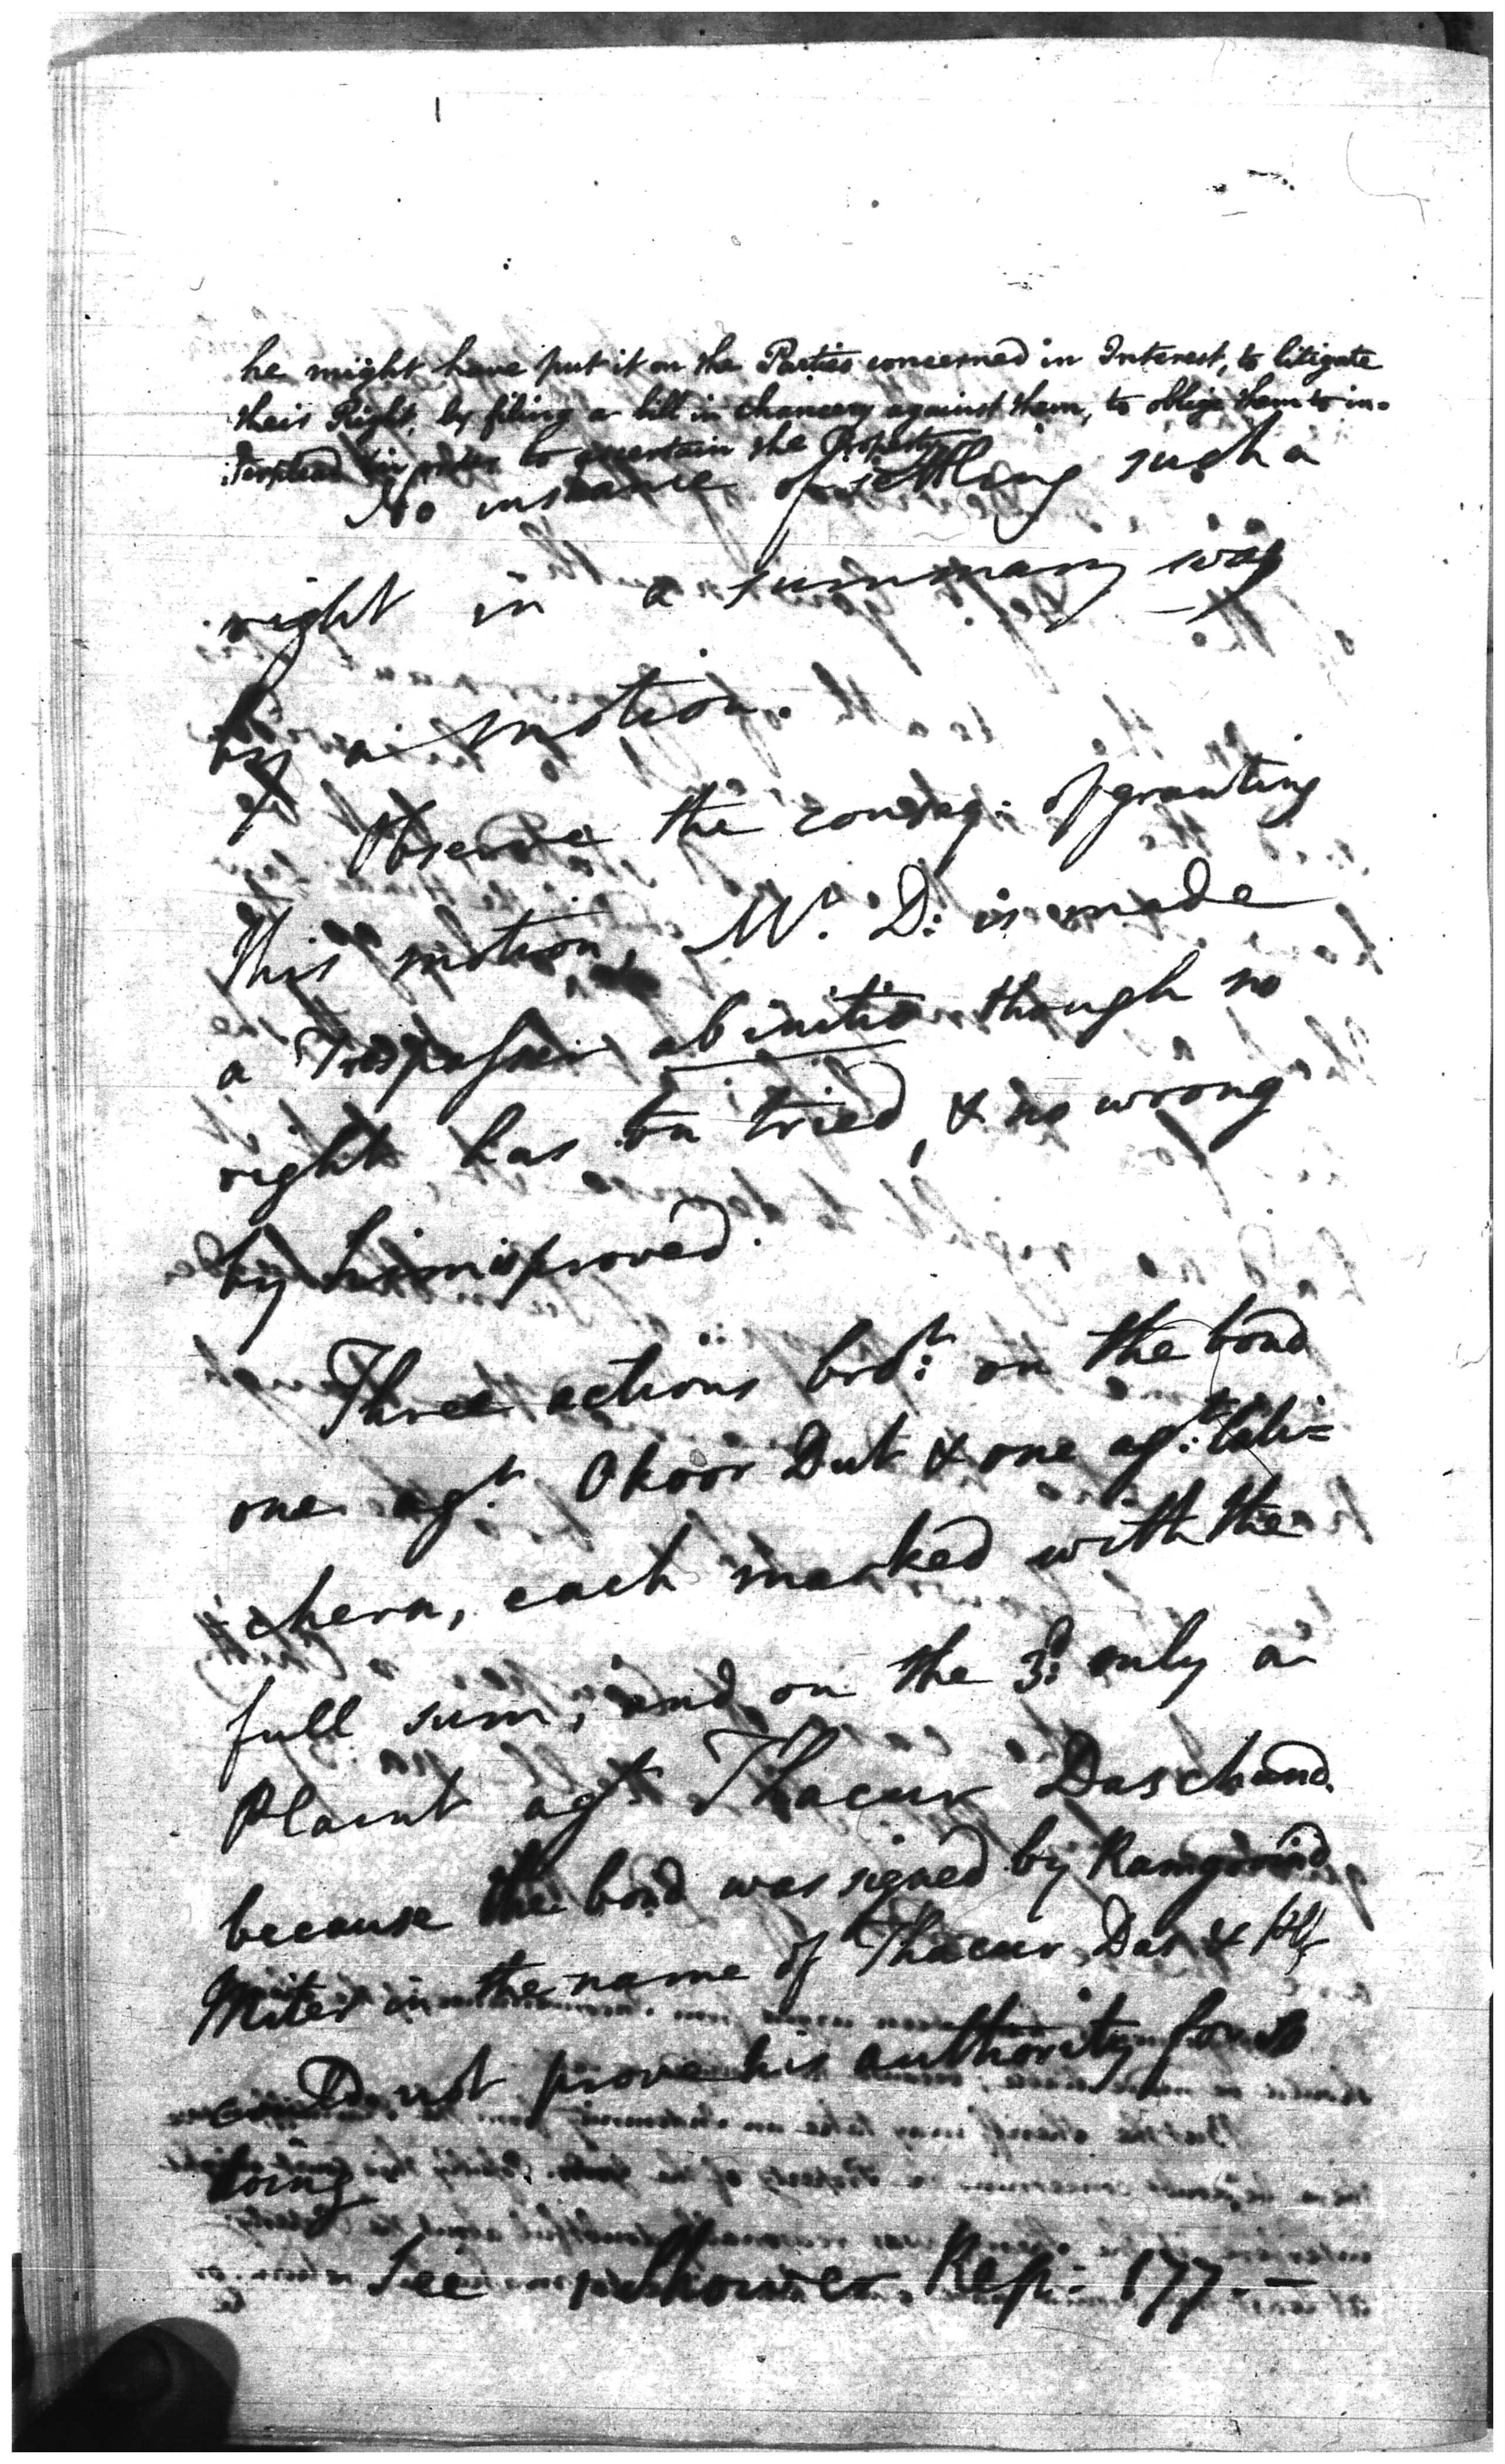 he might have put it on the Parties concerned in Interest, to litigate
their Right, by filing a bill in Chancery against them, to oblige them to in-
terplead in order to ascertain the Property
No instance of settling such a
right in a summary way
by a motion.
Observe the conseq: of granting
this motion, Mr. D: is made
a Trespasser ab initio though no
right has bn tried, & no wrong
by him is proved.
Three actions brot: on the bond
one agt. Okoor Dut & one agt:
chern, each marked with the
full sum, and on the 3d: only a
Plaint agt Thacur Daschund
because the bond was signed by
Miter in the name of Thacur Das & Plf
cou'd not prove his authority for so
doing
See Rep: 177. —